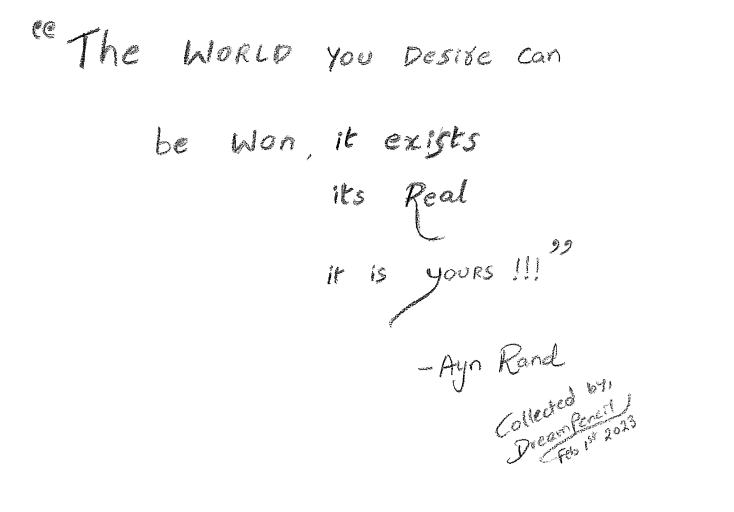 “The WORLD YOU Desire can
be Won, it exists
its Real
it is YOURS !!!”
-Ayn Rand
Collected by,
DreamPencil
Feb 1st 2023